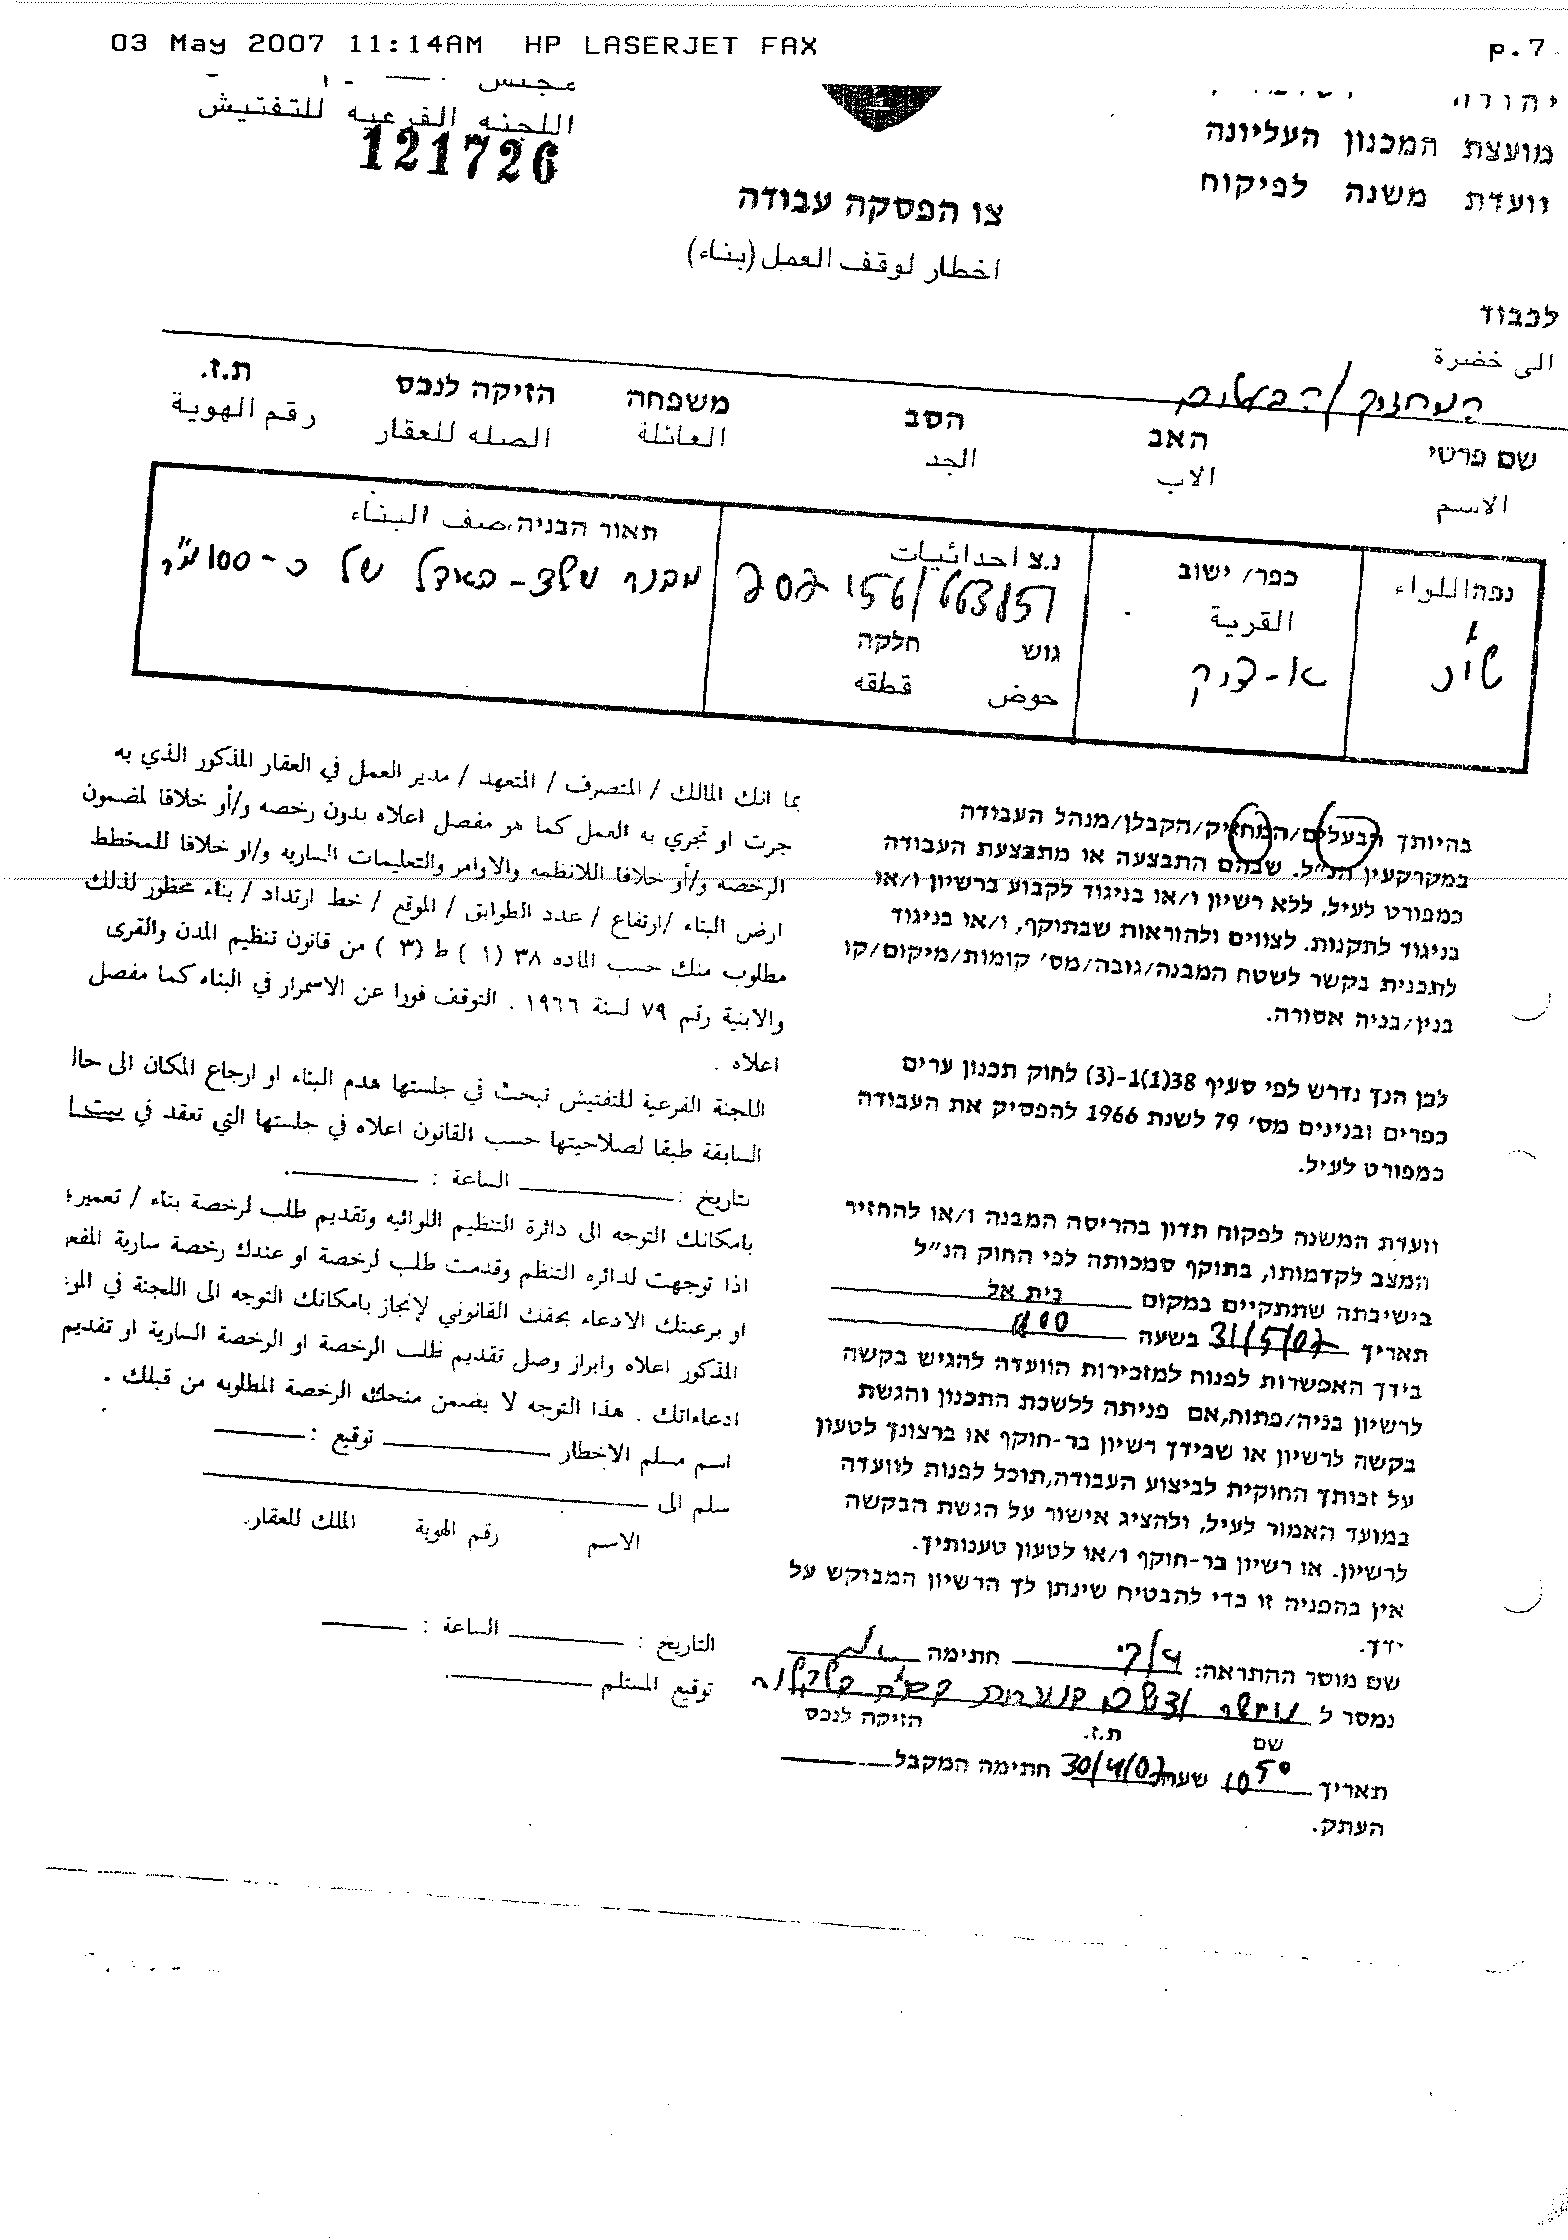 03 May 2007 11:14AM HP LASERJET FAX p.7
מועצת המכנון העליונה
וועדת משנה לפיקוח
اللجنه الفرعيه للتفتيش
121726
צו הפסקה עבודה
اخطار لوقف العمل (بناء)
לכבוד
الى خضرة
המחזיק/הבעלים
שם פרטי האב הסב משפחה הזיקה לנכס ת.ז.
الاسم الاب الجد العائلة الصله للعقار رقم الهوية
נפה اللواء
כפר/ ישוב
القرية
נ.צ احداثيات
גוש חלקה
حوض قطقه
תאור הבניה، صنف البناء
מבנה של כ-100 מ"ר
בהיותך הבעלים/המחזיק/הקבלן/מנהל העבודה
במקרקעין הנ״ל. שבהם התבצעה או מתבצעת העבודה
כמפורט לעיל, ללא רשיון ו/או בניגוד לקבוע ברשיון ו/או
בניגוד לתקנות. לצווים ולהוראות שבתוקף, ו/או בניגוד
לתבנית בקשר לשטח המבנה/גובה/מס׳ קומות/מיקום/קו
בנין/בניה אסורה.
לכן הנך נדרש לפי סעיף 38(1)1-(3) לחוק תכנון ערים
כפרים ובנינים מס׳ 79 לשנת 1966 להפסיק את העבודה
כמפורט לעיל.
וועדת המשנה לפקוח תדון בהריסה המבנה ו/או להחזיר
המצב לקדמותו, בתוקף סמכותה לפי החוק הנ״ל
בישיבתה שתתקיים במקום בית אל
תאריך 31/5/07 בשעה
בידך האפשרות לפנות למזכירות הוועדה להגיש בקשה
לרשיון בניה/פתוח,אם פניתה ללשכת התכנון והגשת
בקשה לרשיון או שבידך רשיון בר-חוקף או ברצונך לטעון
על זכותך החוקית לביצוע העבודה,תוכל לפנות לוועדה
במועד האמור לעיל, ולהציג אישור על הגשת הבקשה
לרשיון. או רשיון בר-חוקף ו/או לטעון טענותיך.
אין בהפניה זו כדי להבטיח שינתן לך הרשיון המבוקש על
ידך.
שם מוסר ההתראה: חתימה
נמסר ל
שם ת.ז. הזיקה לנכס
תאריך 10 50 שעה 30/4/07 חתימה המקבל
העתק.
بما انك المالك / المتصرف / المتعهد / مدير العمل في العقار المذكور الذي به
جرت او تجري به العمل كما هو مفصل اعلاه بدون رخصه و/أو خلافا لمضمون
الرخصه و/أو خلافا اللانظمه والاوامر والتعليمات الساريه و/او خلافا للمخطط
ارض البناء /ارتفاع / عدد الطوابق / الموقع / خط ارتداد / بناء محظور لذلك
مطلوب منك حسب الماده ٣٨ (١ ) ط (٣ ) من قانون تنظيم المدن والقرى
والابنية رقم ٧٩ لسنة ١٩٦٦ . التوقف فورا عن الاسمرار في البناء كما مفصل
اعلاه .
اللجنة الفرعية للتفتيش تبحث في جلستها هدم البناء او ارجاع المكان الى حال
السابقة طبقا لصلاحيتها حسب القانون اعلاه في جلستها التي تعقد في بيت ا
بتاريخ : الساعة :
بامكانك التوجه الى دائرة التنظيم اللوائيه وتقديم طلب لرخصة بناء / تعمير
اذا توجهت لدائره التنظم وقدمت طلب لرخصة او عندك رخصة سارية المفع
او برعبتك الادعاء بحقك القانوني لإنجاز بامكانك التوجه الى اللجنة في المو
المذكور اعلاه وابراز وصل تقديم طلب الرخصة او الرخصة السارية او تقديم
ادعاءاتك . هذا التوجه لا يضمن منحك الرخصة المطلوبه من قبلك .
اسم مسلم الاخطار توقيع :
سلم الى
الاسم رقم الهوية الملك للعقار.
التاريخ : الساعة :
توقيع المستلم